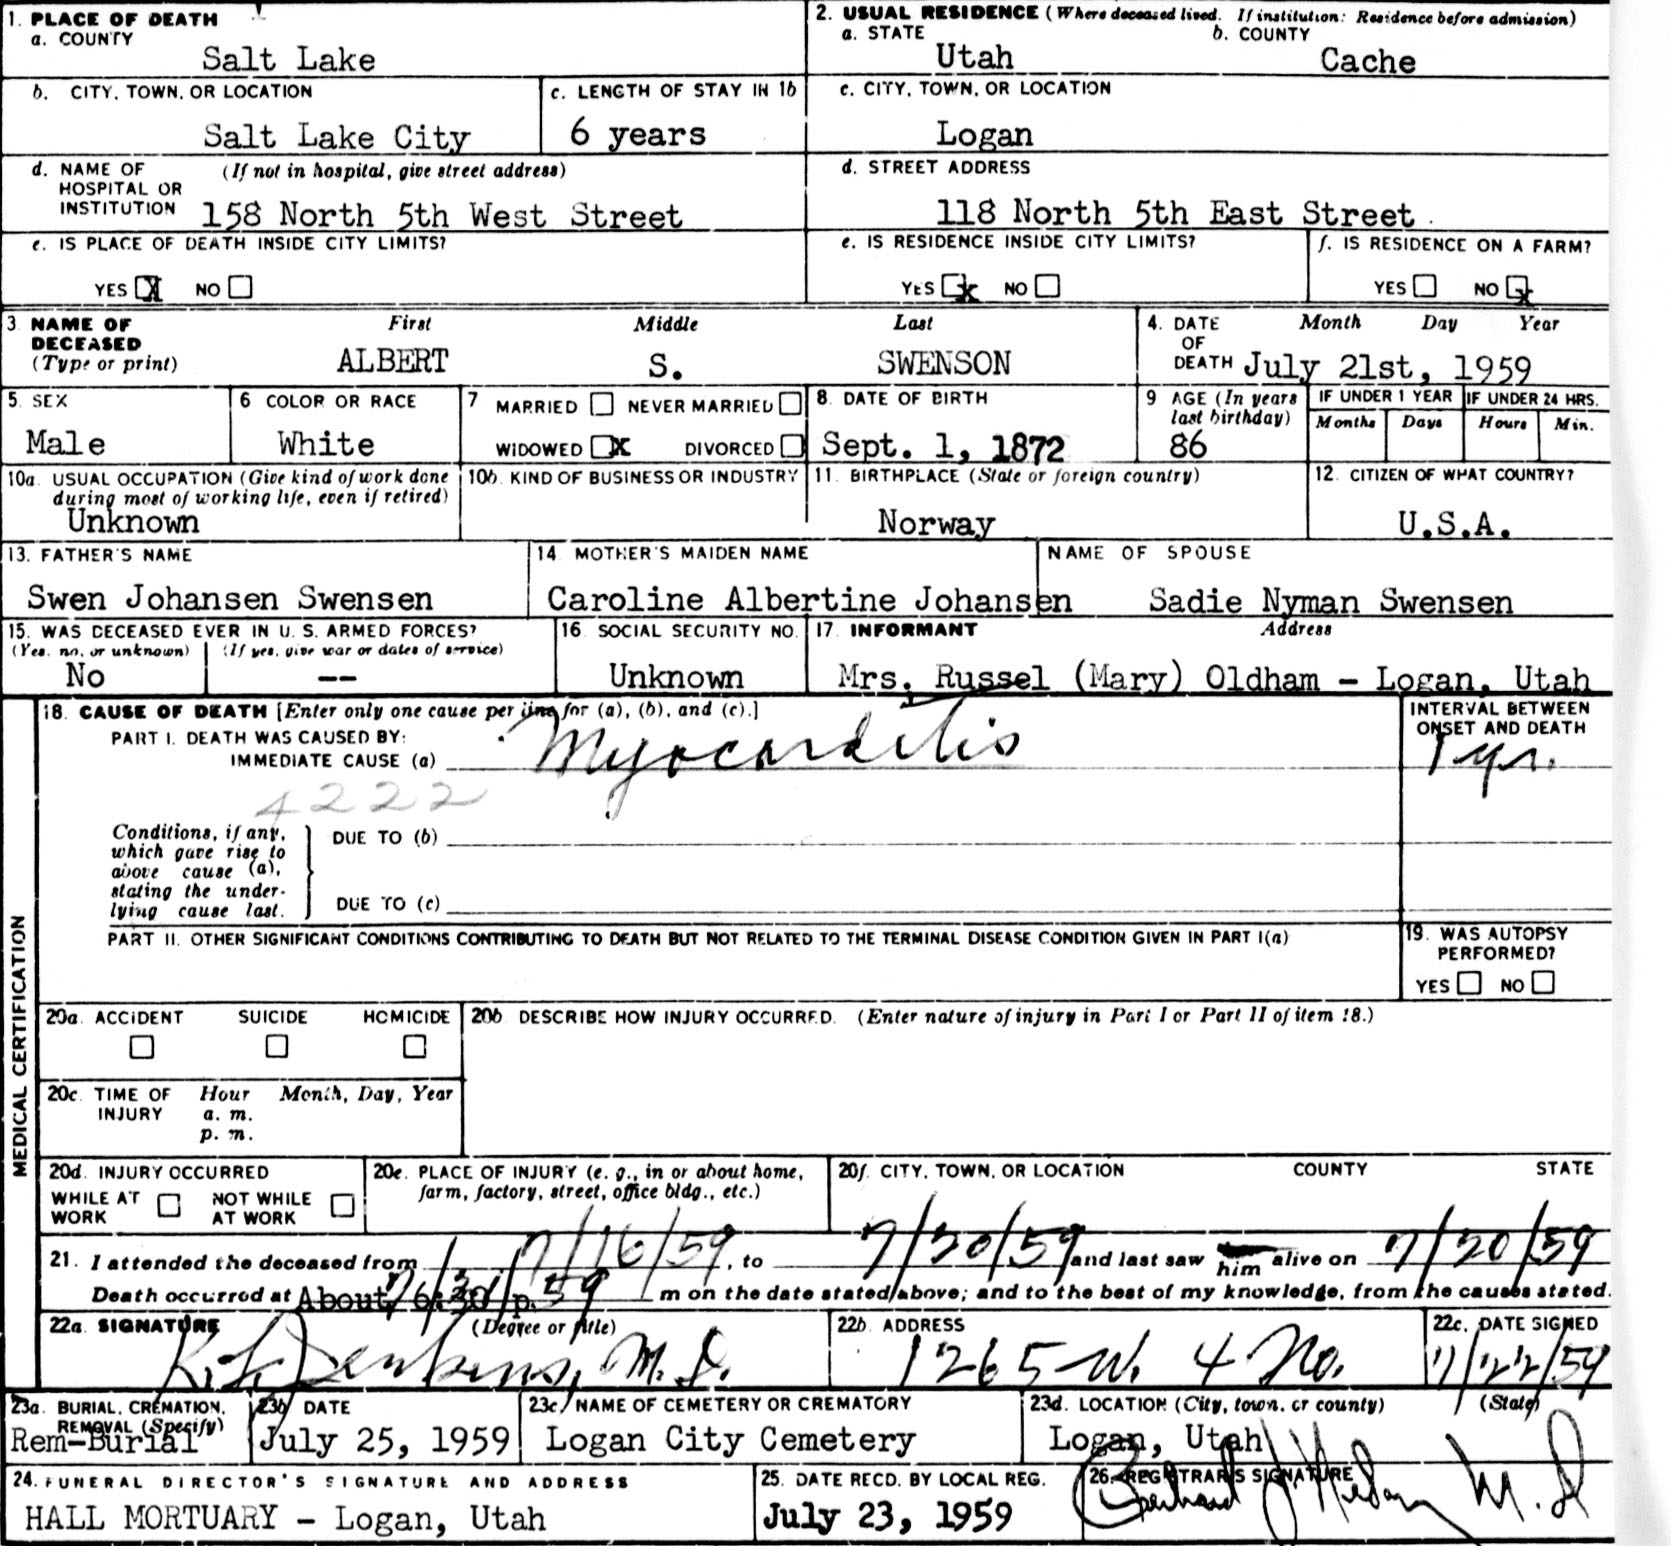 1. PLACE OF DEATH
a. COUNTY
Salt Lake
2. USUAL RESIDENCE (Where deceased lived. If institution: Residence before admission)
a. STATE
Utah
b. COUNTY
Cache
b. CITY, TOWN, OR LOCATION
Salt Lake City
c. LENGTH OF STAY IN 1b
6 years
c. CITY, TOWN, OR LOCATION
Logan
d. NAME OF HOSPITAL OR INSTITUTION (If not in hospital, give street address)
158 North 5th West Street
d. STREET ADDRESS
118 North 5th East Street
e. IS PLACE OF DEATH INSIDE CITY LIMITS?
YES X NO
e. IS RESIDENCE INSIDE CITY LIMITS?
YES x NO
f. IS RESIDENCE ON A FARM?
YES NO x
3. NAME OF DECEASED (Type or print)
First Middle Last
ALBERT S. SWENSON
4. DATE OF DEATH
Month Day Year
July 21st, 1959
5. SEX
Male
6 COLOR OR RACE
White
7 MARRIED NEVER MARRIED
WIDOWED X DIVORCED
8. DATE OF BIRTH
Sept. 1, 1872
9 AGE (In years last birthday)
86
IF UNDER 1 YEAR
Months Days
IF UNDER 24 HRS.
Hours Min.
10a. USUAL OCCUPATION (Give kind of work done during most of working life, even if retired)
Unknown
10b. KIND OF BUSINESS OR INDUSTRY
11. BIRTHPLACE (State or foreign country)
Norway
12. CITIZEN OF WHAT COUNTRY?
U.S.A.
13. FATHER'S NAME
Swen Johansen Swensen
14. MOTHER'S MAIDEN NAME
Caroline Albertine Johansen
NAME OF SPOUSE
Sadie Nyman Swensen
15. WAS DECEASED EVER IN U. S. ARMED FORCES?
(Yes, no, or unknown) (If yes, give war or dates of service)
No --
16. SOCIAL SECURITY NO.
Unknown
17. INFORMANT Address
Mrs. Russel (Mary) Oldham - Logan, Utah
MEDICAL CERTIFICATION
18. CAUSE OF DEATH [Enter only one cause per line for (a), (b), and (c).]
PART I. DEATH WAS CAUSED BY:
IMMEDIATE CAUSE (a) Myocarditis
INTERVAL BETWEEN ONSET AND DEATH
1 yr.
4222
Conditions, if any, which gave rise to above cause (a), stating the underlying cause last.
DUE TO (b)
DUE TO (c)
PART II. OTHER SIGNIFICANT CONDITIONS CONTRIBUTING TO DEATH BUT NOT RELATED TO THE TERMINAL DISEASE CONDITION GIVEN IN PART I(a)
19. WAS AUTOPSY PERFORMED?
YES NO
20a. ACCIDENT SUICIDE HOMICIDE
20b DESCRIBE HOW INJURY OCCURRED. (Enter nature of injury in Part I or Part II of item 18.)
20c. TIME OF INJURY
Hour Month, Day, Year
a. m.
p. m.
20d. INJURY OCCURRED
WHILE AT WORK NOT WHILE AT WORK
20e. PLACE OF INJURY (e. g., in or about home, farm, factory, street, office bldg., etc.)
20f. CITY, TOWN, OR LOCATION COUNTY STATE
21. I attended the deceased from 7/16/59, to 7/20/59 and last saw him alive on 7/20/59
Death occurred at About 6:30 p. m on the date stated above; and to the best of my knowledge, from the causes stated.
22a. SIGNATURE (Degree or title)
K. L. Jenkins, M.D.
22b. ADDRESS
1265 W. 4 No.
22c. DATE SIGNED
7/22/59
23a. BURIAL, CREMATION, REMOVAL (Specify)
Rem-Burial
23b DATE
July 25, 1959
23c. NAME OF CEMETERY OR CREMATORY
Logan City Cemetery
23d. LOCATION (City, town, or county) (State)
Logan, Utah
24. FUNERAL DIRECTOR'S SIGNATURE AND ADDRESS
HALL MORTUARY - Logan, Utah
25. DATE RECD. BY LOCAL REG.
July 23, 1959
26. REGISTRAR'S SIGNATURE
M.D